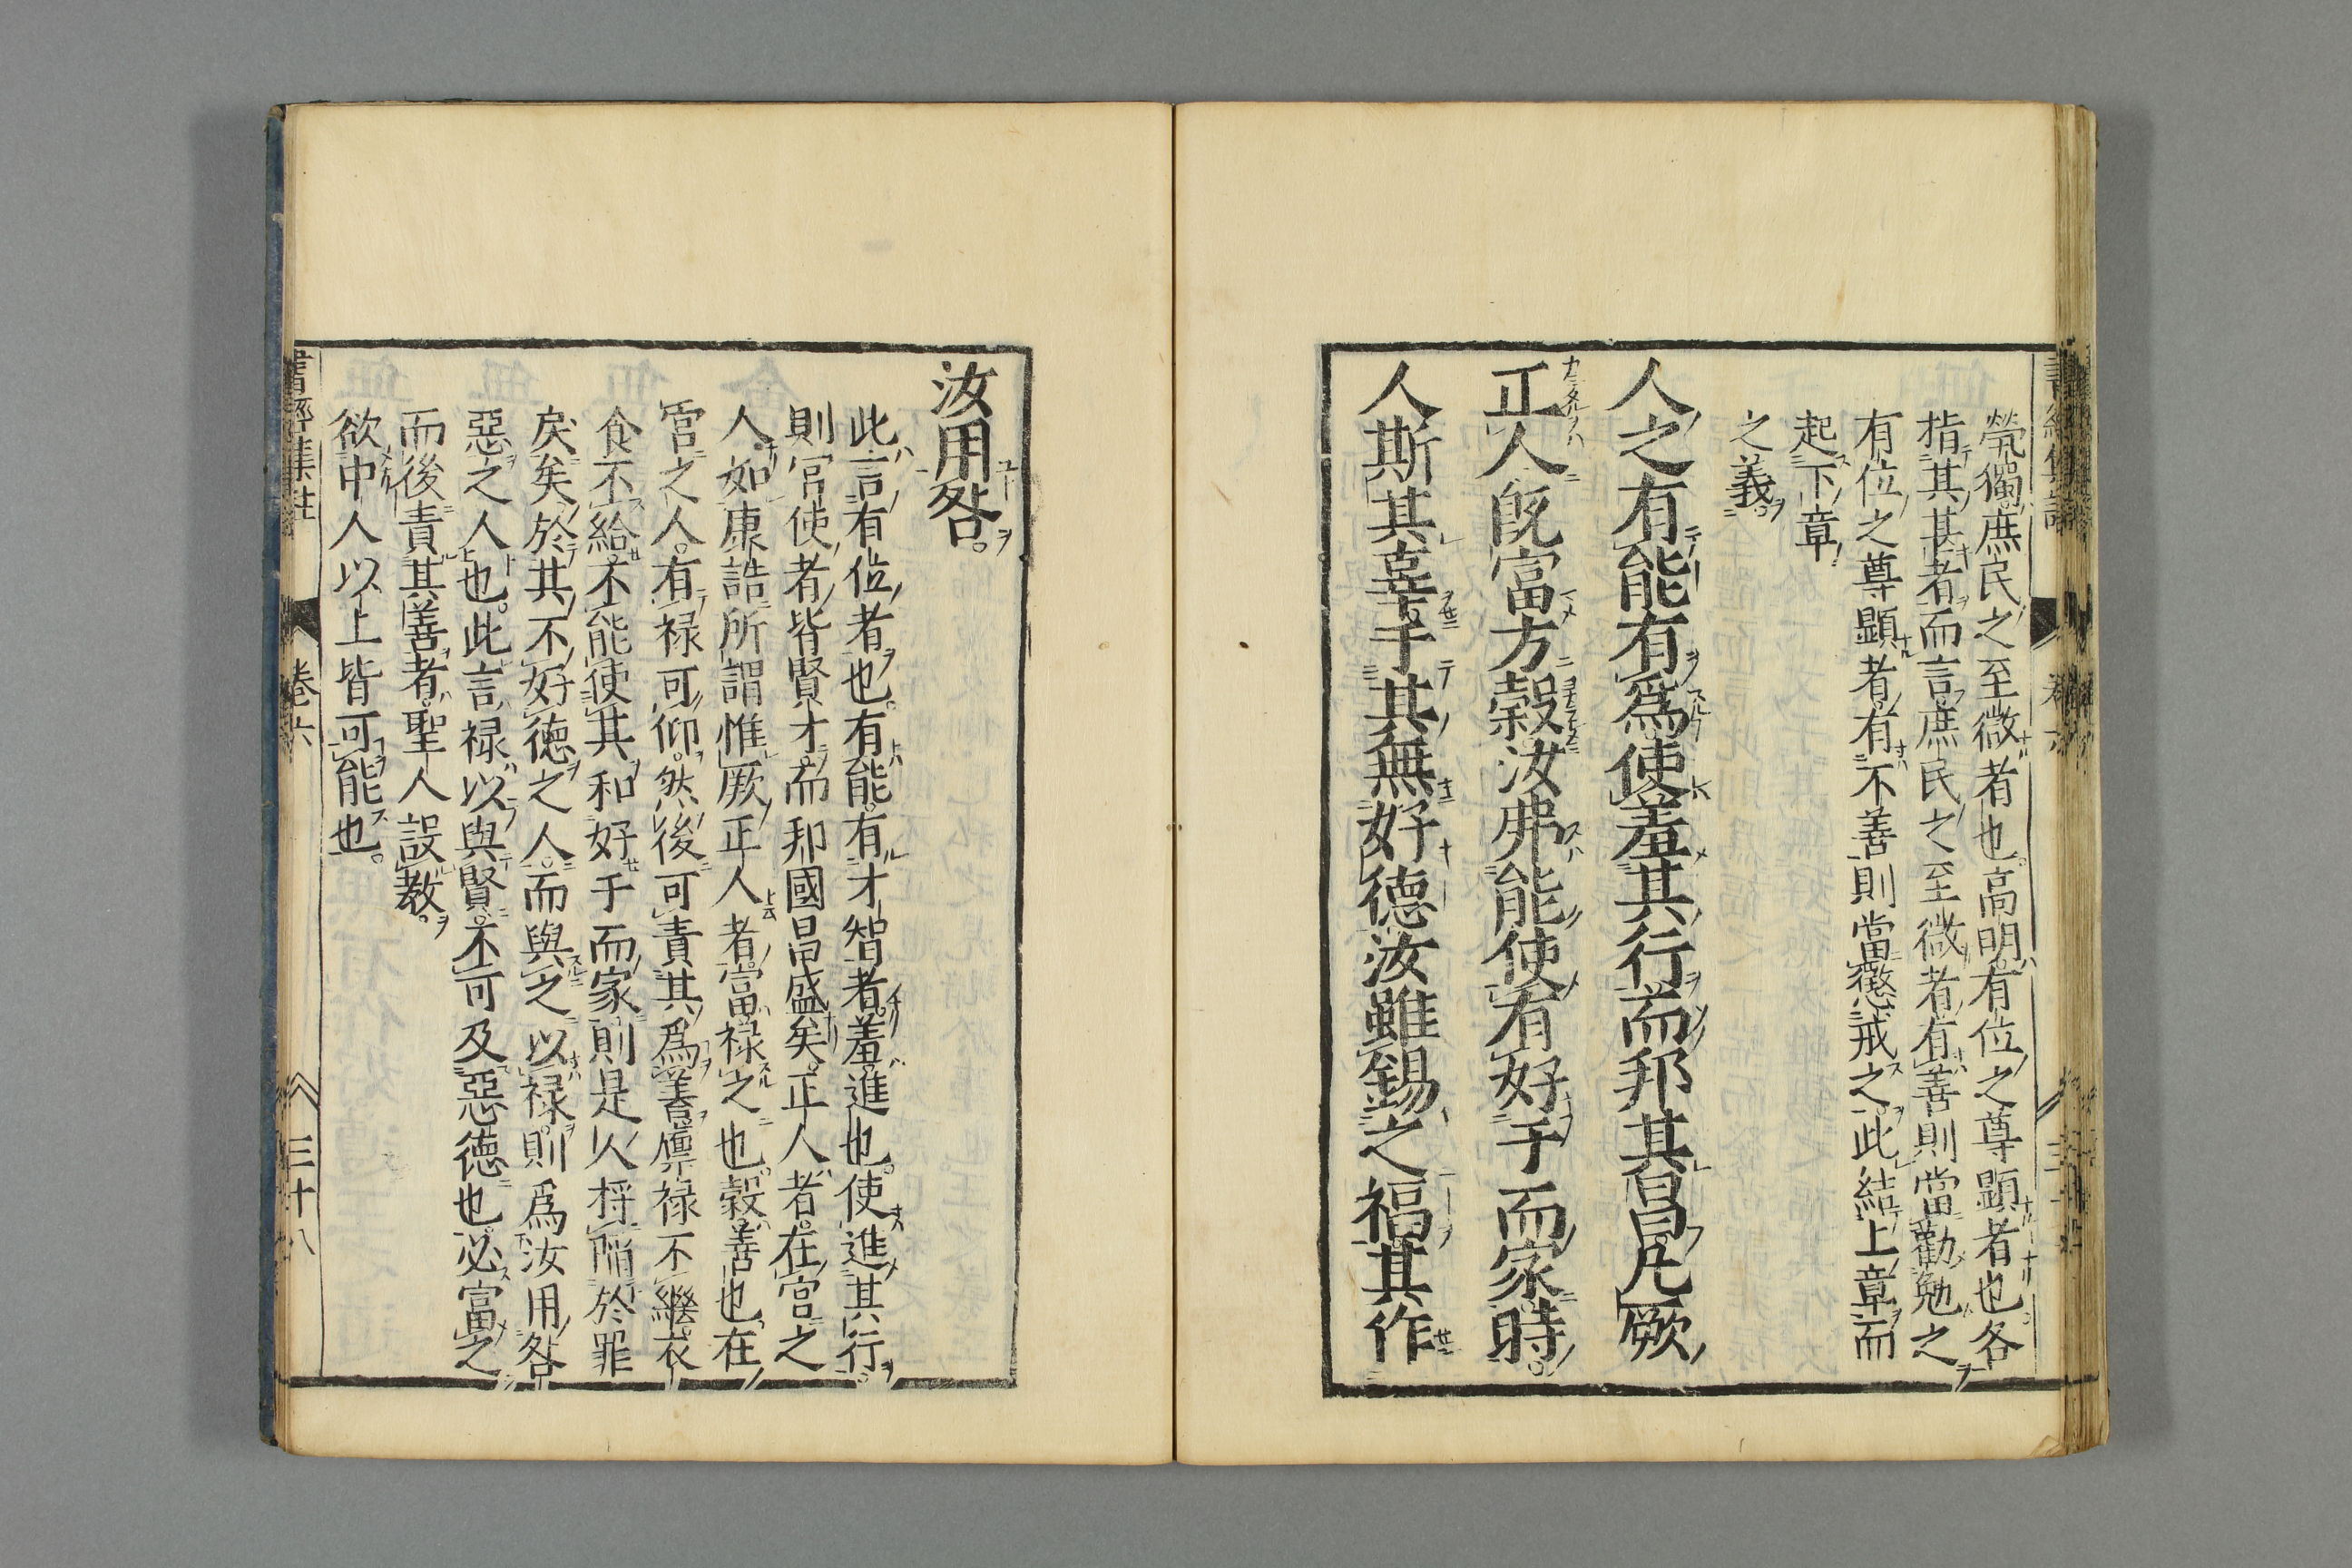 煢獨庶民之至微者也高明有位之尊顯者也各
指其甚者而言庶民之至微者有善則當勸勉之
有位之尊顯者有不善則當懲戒之此結上章而
起下章
之義
人之有能有爲使羞其行而邦其昌凡厥
正人既富方穀汝弗能使有好于而家時
人斯其辜于其無好德汝雖錫之福其作
汝用咎
此言有位者也有能有才智者羞進也使進其行
則官使者皆賢才而邦國昌盛矣正人者在官之
人如康誥所謂惟厥正人者富祿之也穀善也在
官之人有祿可仰然後可責其爲善廩祿不繼衣
食不給不能使其和好于而家則是人將陷於罪
戾矣於其不好德之人而與之以祿則爲汝用咎
惡之人也此言祿以與賢不可及惡德也必富之
而後責其善者聖人設教
欲中人以上皆可能也
書經集註 卷六 三十八